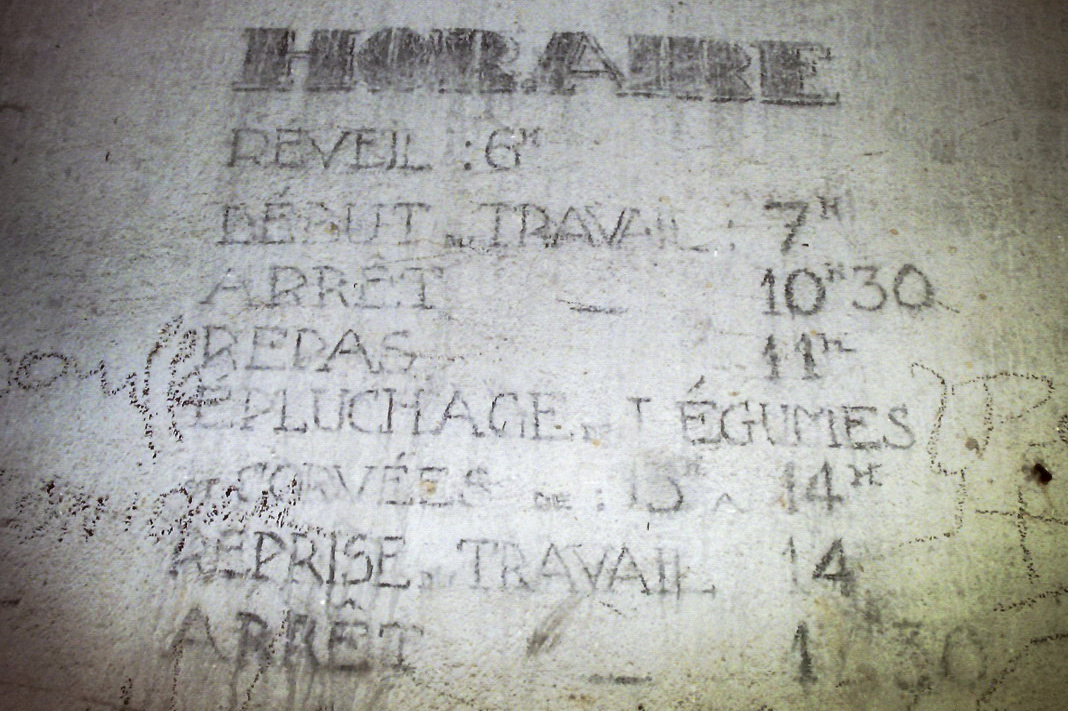 HORAIRE
RÉVEIL : 6H
DÉBUT DU TRAVAIL : 7H
ARRÊT — 10H30
REPAS 11H
ÉPLUCHAGE DE LÉGUMES
CORVÉES DE : 13H A 14H
REPRISE DU TRAVAIL 14
ARRÊT — 30